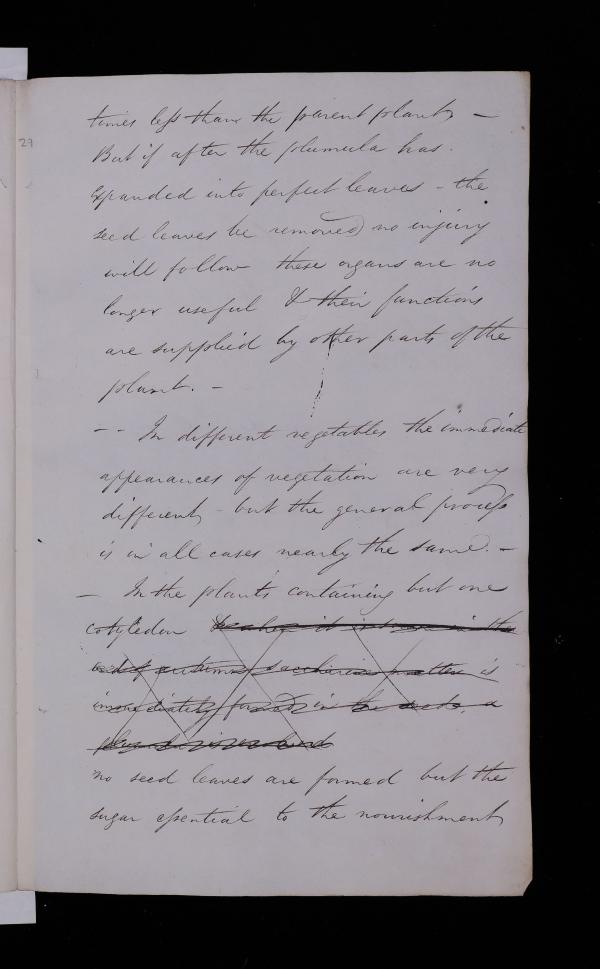 29
times less than the parent plant, —
But if after the plumula has.
expanded into perfect leaves - the
seed leaves be removed no injury
will follow these organs are no
longer useful & their functions
are supplied by other parts of the
plant. —
- - In different vegetables the immediate
appearances of vegetation are very
different - but the general process
is in all cases nearly the same. —
— In the plants containing but one
cotyledon it is in the
end of autumn saccharine matter is
immediately formed in the a
no seed leaves are formed but the
sugar essential to the nourishment